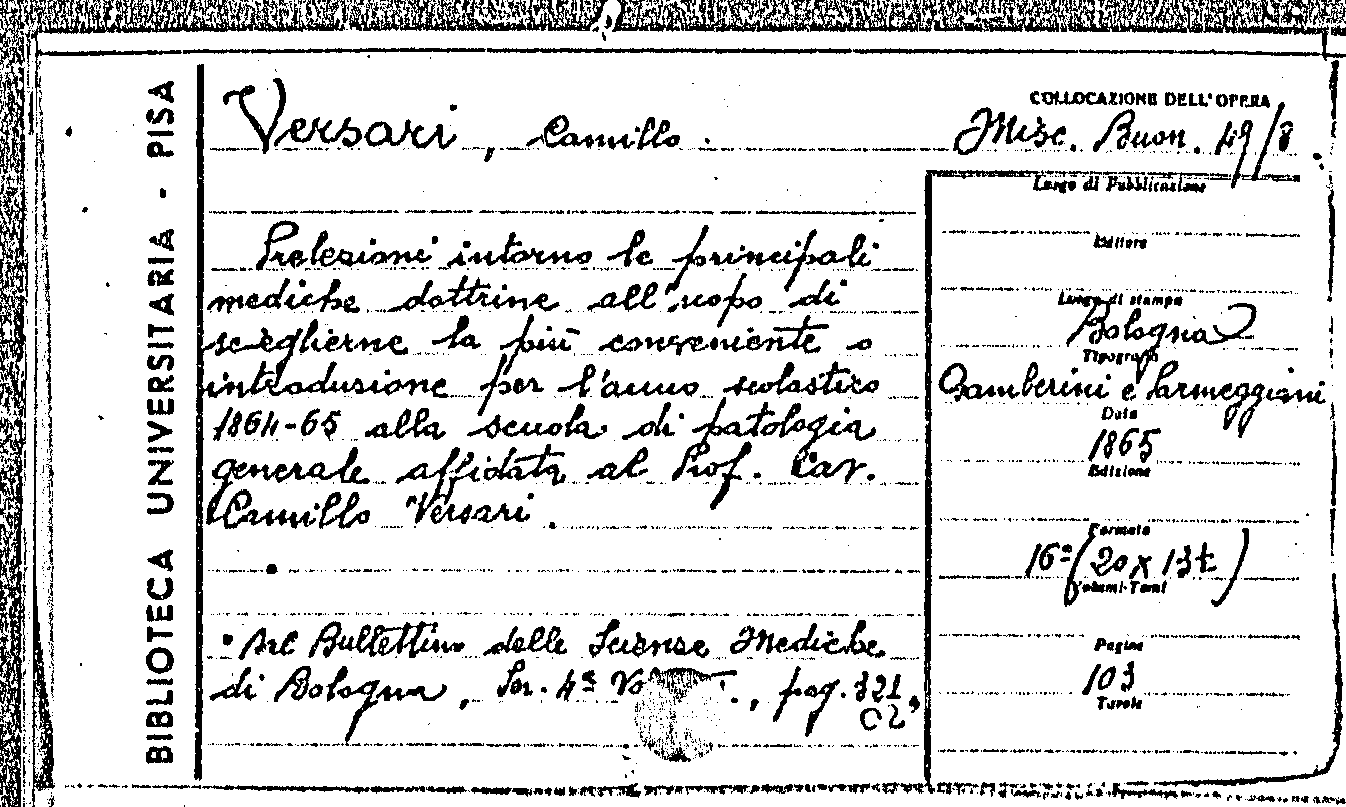 BIBLIOTECA UNIVERSITARIA - PISA
Versari, Camillo.
COLLOCAZIONE DELL'OPERA
Misc. Buon. 49/8
Prelezioni intorno le principali
mediche dottrine all'scopo di
sceglierne la più conveniente o
introduzione per l'anno scolastico
1864-65 alla scuola di patologia
generale affidata al Prof. Cav.
Camillo Versari.
Bullettino delle Scienze Mediche
di Bologna, Ser. 4ª pag. 321
Luogo di Pubblicazione
Editore
Luogo di stampa
Bologna
Tipografo
Gamberini e Parmeggiani
Data
1865
Edizione
Formato
16º (20 x
Volumi-Tomi
Pagine
103
Tavole